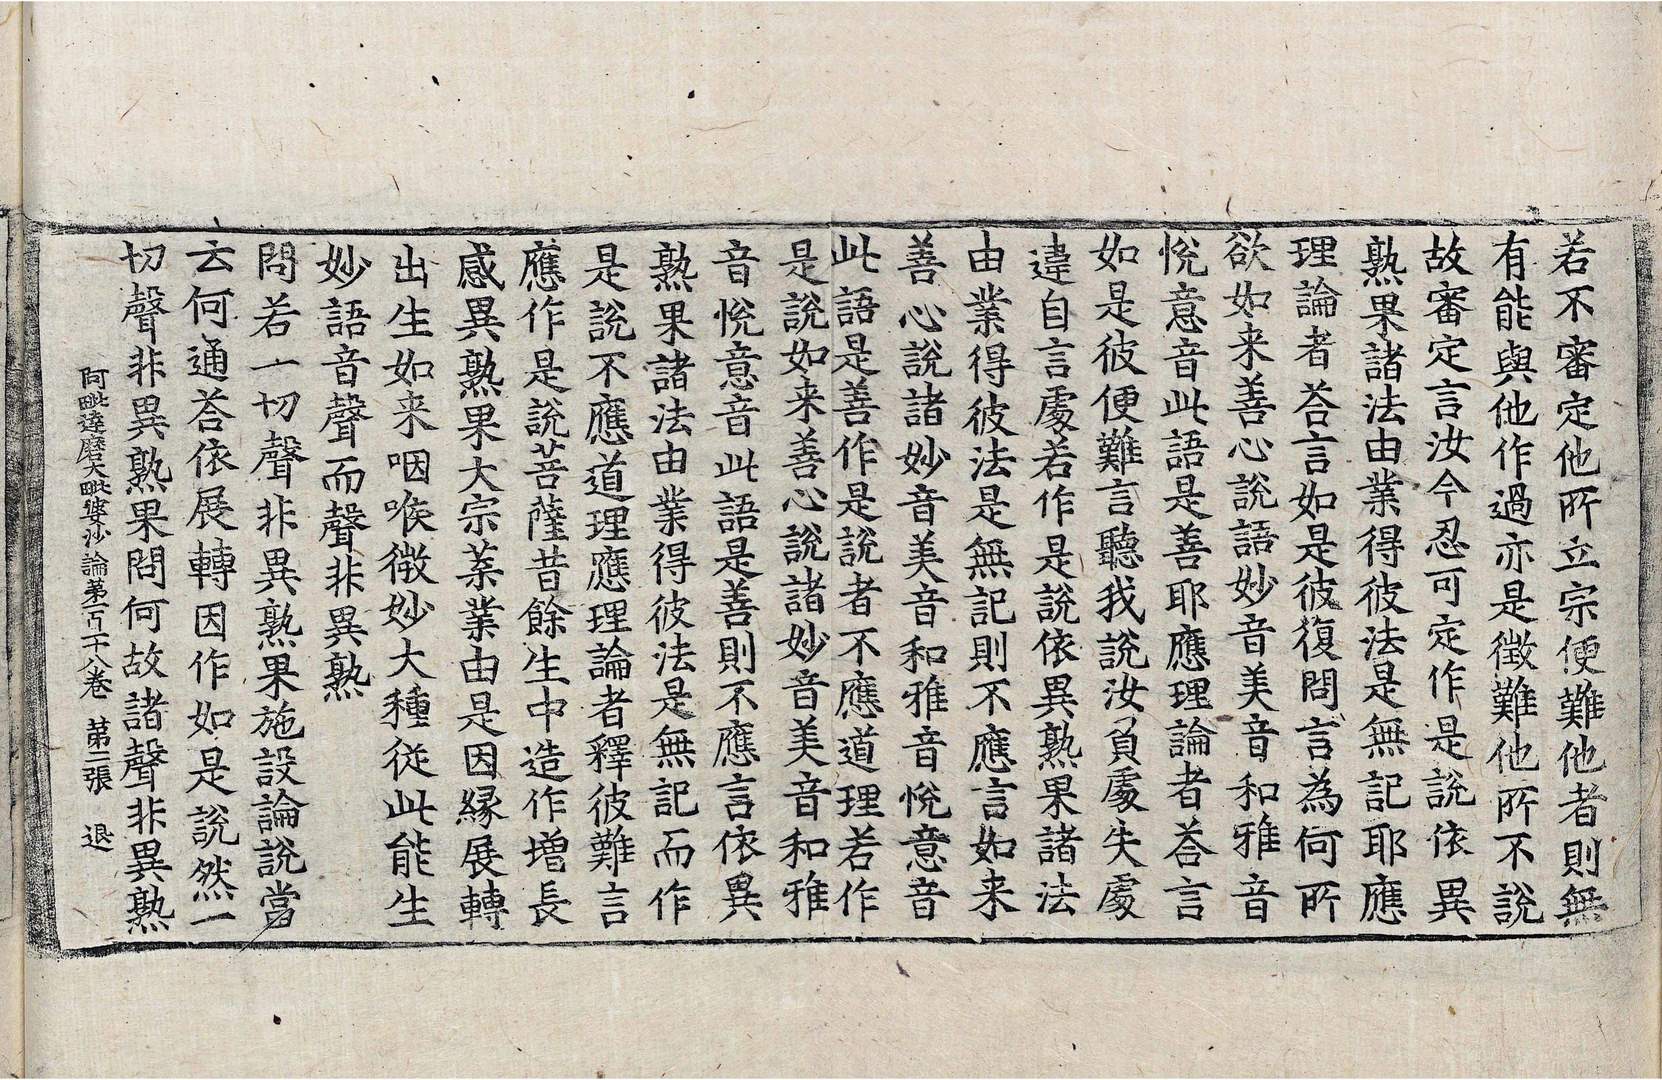 若不審定他所立宗便難他者則無
有能與他作過亦是徵難他所不說
故審定言汝今忍可定作是說依異
熟果諸法由業得彼法是無記耶應
理論者荅言如是彼復問言為何所
欲如来善心說語妙音美音和雅音
悅意音此語是善耶應理論者荅言
如是彼便難言聽我說汝負處失處
違自言處若作是說依異熟果諸法
由業得彼法是無記則不應言如来
善心說諸妙音美音和雅音悅意音
此語是善作是說者不應道理若作
是說如来善心說諸妙音美音和雅
音悅意音此語是善則不應言依異
熟果諸法由業得彼法是無記而作
是說不應道理應理論者釋彼難言
應作是說菩薩昔餘生中造作增長
感異熟果大宗葉業由是因緣展轉
出生如来咽喉微妙大種從此能生
妙語音聲而聲非異熟
問若一切聲非異熟果施設論說當
云何通荅依展轉因作如是說然一
切聲非異熟果問何故諸聲非異熟
阿毗達磨大毗婆沙論第一百一十八卷 第二張 退